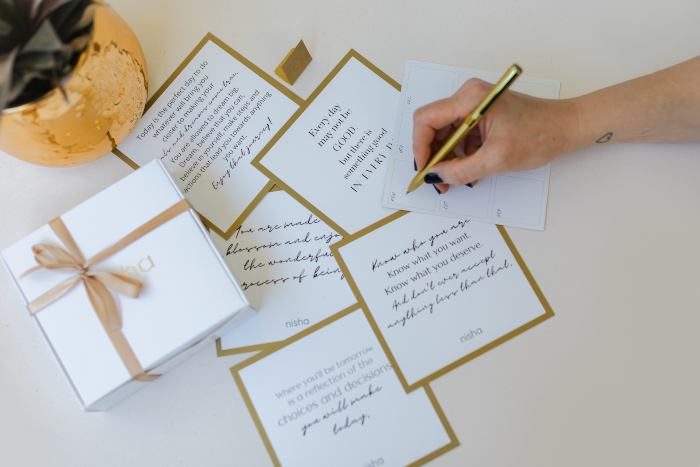 Today is the perfect day to do
whatever will bring you
closer to making your
You are allowed to dream big.
Dream, believe that you can,
believe in yourself, make steps and
actions that lead you towards anything
you want.
Enjoy that journey!
Every day
may not be
GOOD
but there is
something good
IN EVERY
You are made
blossom and enjoy
the wonderful
process of being
nisha
Know who you are
Know what you want.
Know what you deserve.
And don't ever accept
anything less than that.
nisha
where you'll be tomorrow
is a reflection of the
choices and decisions
you will make
today.
nisha